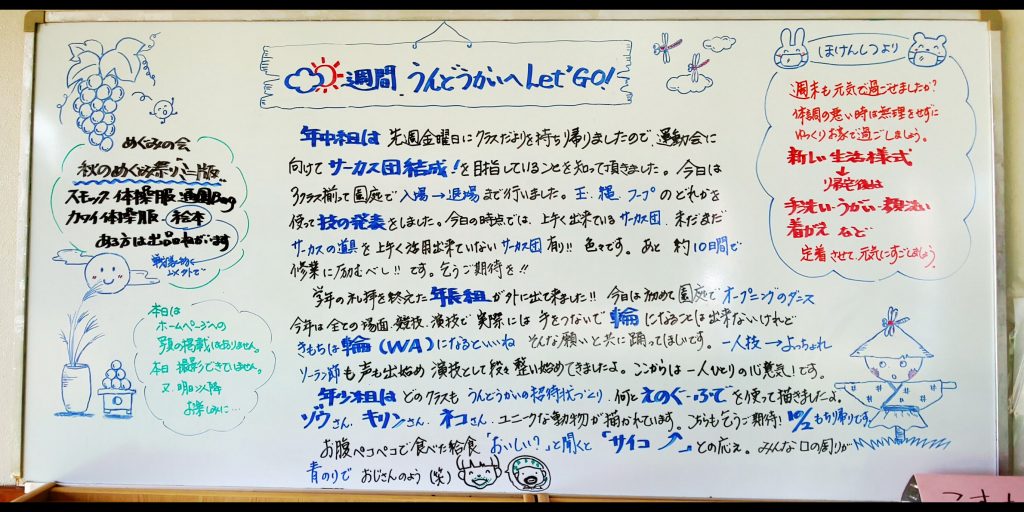 週間 うんどうかいへ Let'Go!
めぐみの会
秋のめぐみ祭り ミニ版
スモック 体操服 通園Bag
カラー体操服 絵本
ある方は出品ねがいます
以外で
本日は
ホームページへの
写真の掲載はありません。
本日 撮影できていません。
又、明日以降
お楽しみに…
年中組は 先週金曜日にクラスだよりを持ち帰りましたので、運動会に
向けて サーカス団結成!を目指していることを知って頂きました。今日は
3クラス揃って園庭で 入場→退場まで行いました。玉、縄、フープのどれかを
使って技の発表をしました。今日の時点では、上手く出来ているサーカス団、まだまだ
サーカスの道具を上手く活用出来ていないサーカス団有り!! 色々です。あと 約10日間で
修業に励むべし!! です。乞うご期待を!!
学年の礼拝を終えた 年長組が外に出て来ました!! 今日は初めて園庭でオープニングのダンス
今年は全ての場面、競技、演技で 実際には 手をつないで 輪になることは出来ないけれど
きもちは輪(WA)になるといいね そんな願いと共に踊ってほしいです。一人技→よっちょれ
ソーラン節も声も出始め 演技として段々整い始めてきましたよ。ここからは一人ひとりの心意気!です。
年少組は どのクラスも うんどうかいの招待状づくり、何とえのぐ・ふでを使って描きましたよ。
ゾウさん、キリンさん、ネコさん、ユニークな動物が描かれています。こちらも乞うご期待! 10/2 もち帰りです。
お腹ペコペコで食べた給食「おいしい?」と聞くと「サイコー」との応え。みんな口の周りが
青のりで おじさんのよう (笑)
ほけんしつより
週末も元気で過ごせましたか?
体調の悪い時は無理をせずに
ゆっくりお家で過ごしましょう。
新しい生活様式
↓
帰宅後は
手洗い・うがい・顔洗い
着がえ など
定着させて、元気にすごしましょう。